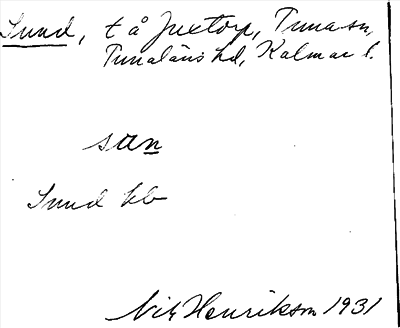 Sund, t å Juxtorp, Tuna sn,
Tunaläns hd, Kalmar l.
san
Sund kb
Henrikson 1931